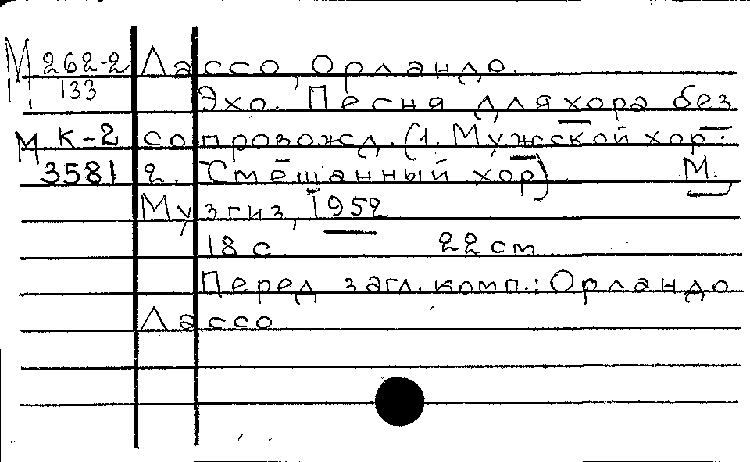 М 262-2 Лассо, Орландо.
133 Эхо. Песня для хора без
М К-2 сопровожд. (1. Мужской хор;
3581 2. Смешанный хор) М.
Музгиз, 1952
18 с. 22 см
Перед загл. комп.: Орландо
Лассо